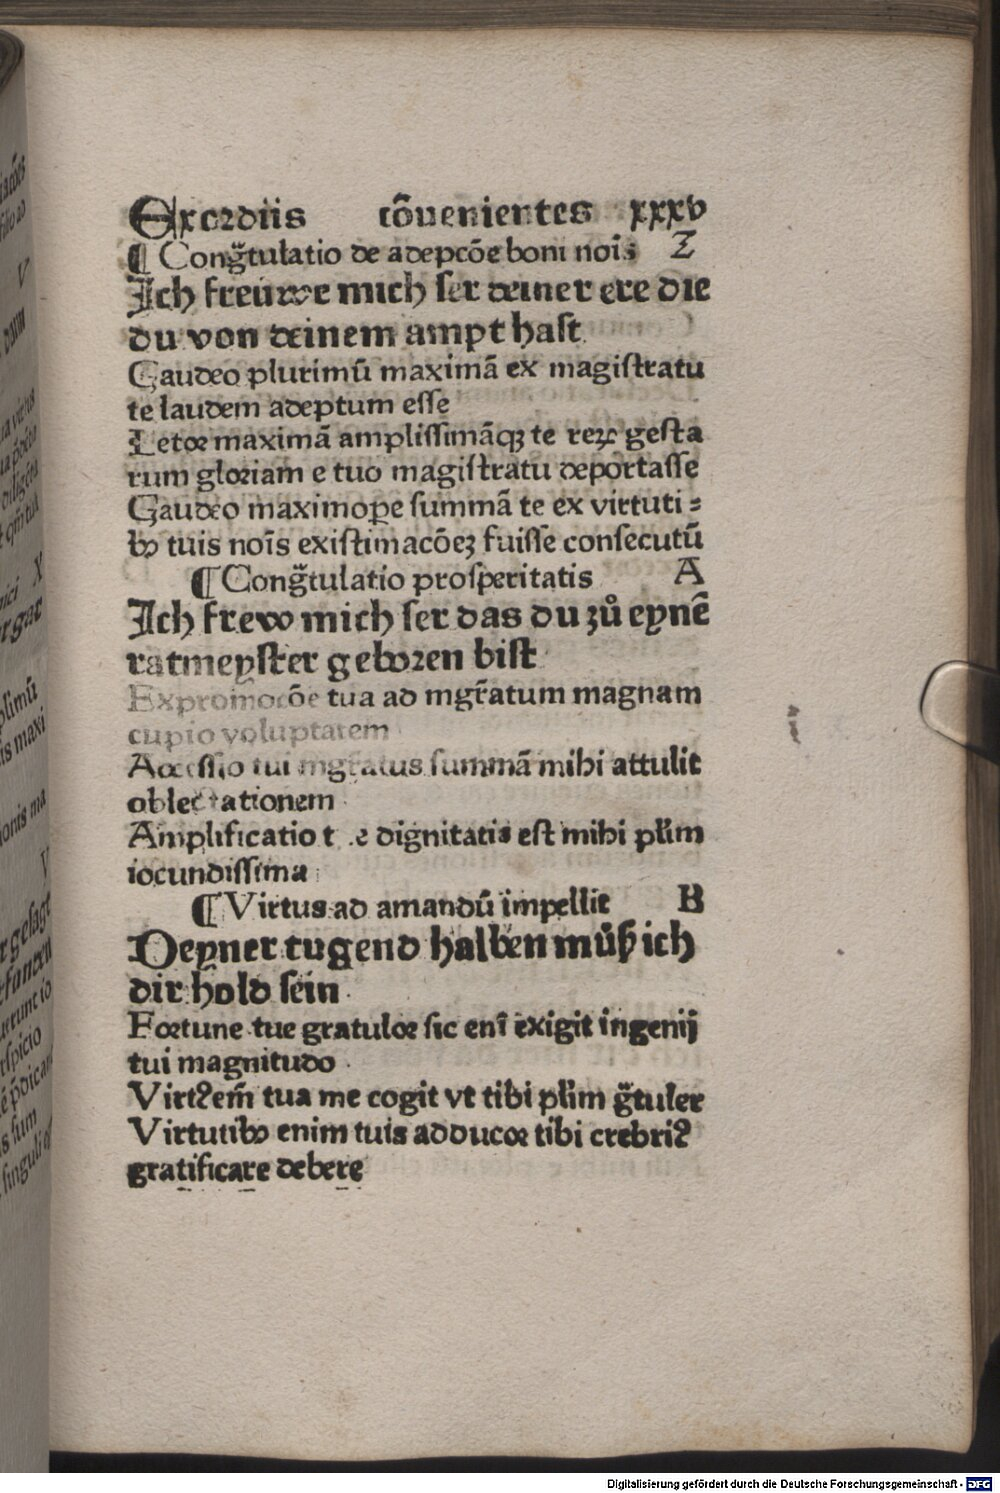 Exordiis cōuenientes xxxv
¶ Congr̄tulatio de adepcōe boni noīs Z
Ich freuwe mich ser deiner ere die
du von deinem ampt hast
Gaudeo plurimū maximā ex magistratu
te laudem adeptum esse
Letor maximā amplissimāqꝫ te reꝝ gesta
rum gloriam e tuo magistratu deportasse
Gaudeo maximoꝑe summā te ex virtuti⸗
bꝰ tuis noīs existimacōeꝫ fuisse consecutū
¶ Congr̄tulatio prosperitatis A
Ich frew mich ser das du zů eynē
ratmeyster geboren bist
Expromocōe tua ad mgr̄atum magnam
cupio voluptatem
Accessio tui mgr̄atus summā mihi attulit
oblectationem
Amplificatio t e dignitatis est mihi plīm
iocundissima
¶ Virtus ad amandū impellit B
Deyner tugend halben můß ich
dir hold sein
Fortune tue gratulor sic enī exigit ingenij
tui magnitudo
Virtꝰem̄ tua me cogit vt tibi plīm gr̄tuler
Virtutibꝰ enim tuis adducor tibi crebriꝰ
gratificare debere
iatōes
filio ad
V
X
rgar
plimū
is maxi
ionis ma
V
r gesagt
uerunt id
rspicio
ē p̄dicar
s sum
singuli
Digitalisierung gefördert durch die Deutsche Forschungsgemeinschaft - DFG